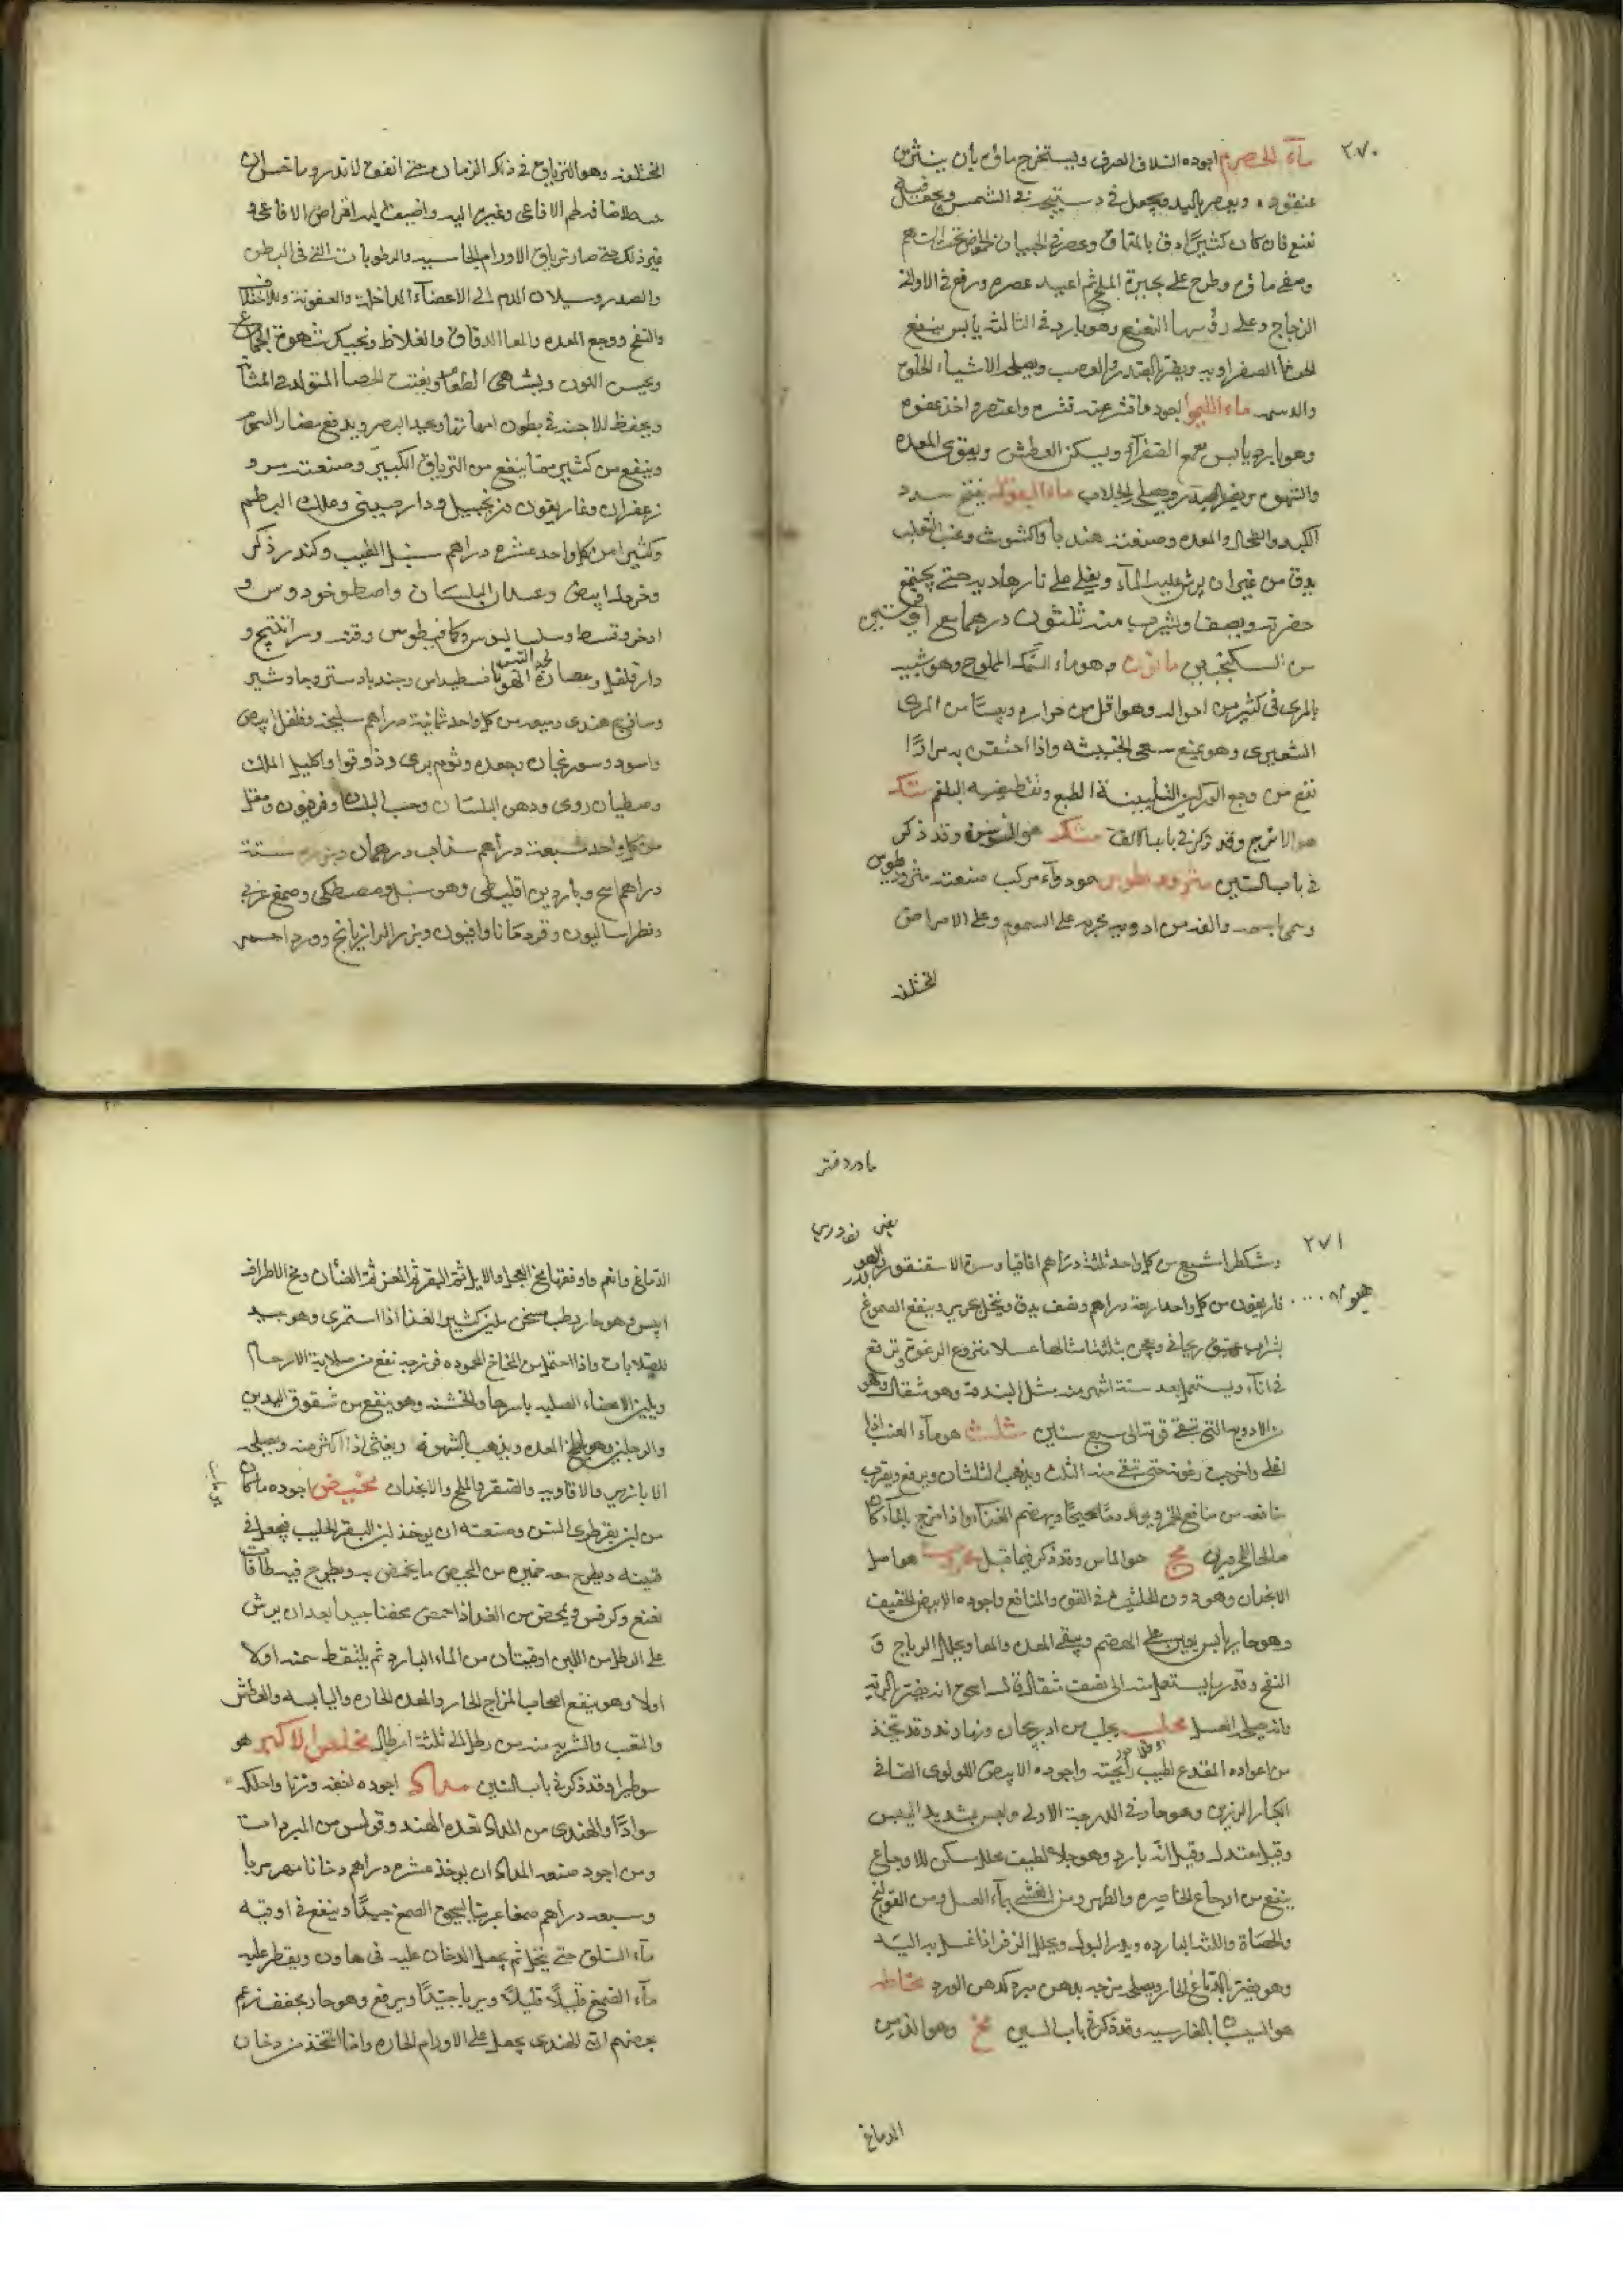 ٢٧٠
مآء الحصرم اجوده السلاف الصرف ويستخرج ماؤه بأن ينثر من
عنقوده ويعصر باليد ويجعل في الشمس ويجعل فيه
نعنع فان كان كثيرًا دق
وصفى ماؤه وطرح على الملح ثم اعيد عصره ورفع في الاوانى
الزجاج وعلى رؤسها النعنع وهو بارد في الثالثة يابس ينفع
الصفراويه ويضر بالصدر والعصب ويصلحه الاشياء الحلوه
والدسمه ماء الليمو اجوده ما قشر عنه قشره واعتصره اخذ عفوه
وهو بارد يابس يقمع الصفرآء ويسكن العطش ويقوى المعده
والشهوه ويضر بالصدر ويصلحه الجلاب ماء البقول يفتح سدد
الكبد والطحال والمعده وصنعته هندبا واكشوث وعنب الثعلب
يدق من غير ان يرش عليه المآء ويغلى على نار هادية حتى يجتمع
خضرته ويصفا ويشرب منه ثلثون درهما مع اوقيتين
من السكنجبين ماء نون وهو ماء السمك المملوح وهو شبيه
بالمرى في كثير من احواله وهو اقل من حراره ويبسًا من المرى
الشعيرى وهو يمنع سعى الخبيثه واذا احتقن به مرارًا
نفع من وجع الوركين لتليينه الطبع وتقطيعه البلغم متك
هو الاترج وقد ذكر في باب الالف متك هو السوسن وقد ذكر
في باب السين مثروديطوس هو دوآء مركب صنعته مثروديطوس
وسمى باسمه والفه من ادويه مجربه على السموم وعلى الامراض
المختلفه
المختلفه وهو الترياق في ذلك الزمان حتى اتفق
فيه لحم الافاعى وغير اليه واضيف اليه اقراص الافاعى و
غير ذلك حتى صار ترياق الاورام الجاسيه والرطوبات التى في البطن
والصدر وسيلان الدم الى الاعضآء الداخله والعفونه
والنفخ ووجع المعده والمعا الدقاق والغلاظ وتحريك شهوة الجماع
ويحسن اللون ويشهى الطعام ويفتت الحصا المتولده في المثانه
ويحفظ للاجنه في بطون امهاتها ويحد البصر ويدفع مضار السموم
وينفع من كثير مما ينفع من الترياق الكبير وصنعته مر و
زعفران وغاريقون وزنجبيل ودارصينى وعلك البطم
وكثيرا من كل واحد عشره دراهم سنبل الطيب وكندر ذكر
وخردل ابيض وعيدان البلسان واصطوخودوس و
اذخر وقسط وكمافيطوس وقنه وراتينج و
دارفلفل وعصارة لحية التيس وجندبادستر وجاوشير
وساذج هندى وميعه من كل واحد ثمانية دراهم سليخه وفلفل ابيض
واسود وسورنجان وجعده وثوم برى ودوقوا واكليل الملك
وجنطيان رومى ودهن البلسان وحب البلسان وقرنفون ومقل
من كل واحد سبعة دراهم سذاب درهمان ستة
دراهم اسج وناردين اقليطى وهو سنبل ومصطكى وصمغ عربى
وفطراساليون وقردمانا وافيون وبزر الرازيانج وورد احمر
ما در دفتر
٢٧١
ومشكطرامشيع من كل واحد ثلثة دراهم اقاقيا وسرة الاسقنقور
من كل واحد اربعة دراهم ونصف يدق وينخل بحرير وينقع الصموغ
بشراب عتيق ريحانى ويعجن بثلثة امثالها عسلا منزوع الرغوه وترفع
في انآء ويستعمل بعد ستة اشهر منه مثل البندقه وهو مثقال وهو
من الادويه التى تبقى قوتها الى سبع سنين مثلث هو مآء العنب اذا
اغلى واخرجت رغوته حتى يبقى منه الثلث ويذهب الثلثان ويرفع ويقرب
منافعه من منافع الخمر ويولد دمًا صحيحًا ويهضم الغذآء واذا مزج بالمآء كان
مج هو الماش وقد ذكر فيما قبل محروث هو اصل
الانجدان وهو دون الحلتيت في القوه والمنافع واجوده الابيض الخفيف
وهو حار يابس يعين على الهضم وينقى المعده والمعا ويحلل الرياح و
النفخ وقدر ما يستعمل منه الى نصف مثقال
وانه يصلحه العسل محلب يجلب من اذربيجان ونهاوند وقد يتخذ
من اعواده المقدع لطيب رايحته واجوده الابيض اللولوى الصافى
الكبار الرزين وهو حار في الدرجة الاولى وليس بشديد اليبس
وقيل معتدل وقيل انه بارد وهو جلاء لطيف محلل مسكن للاوجاع
ينفع من اوجاع الخاصره والظهر ومن الغشى بمآء العسل ومن القولنج
والحصاة واللثه البارده ويدر البول ويحلل الزفر اذا غسل به اليد
وهو يضر بالدماغ الحار ويصلحه مزجه بدهن مبرد كدهن الورد مخاطه
هو بالفارسيه وقد ذكر في باب السين مخ وهو الذى من
الدماغ
الدماغ وانعم واوفقها مخ العجل والايل ثم البقر ثم المعز ثم الضأن ومخ الاطراف
ايبس وهو حار رطب مسخن ملين كثير الغذا اذا استمرى وهو جيد
للصلابات واذا احتمل من المخاخ المحموده فرزجه نفع من صلابة الارحام
ويلين الاعضاء الصلبه باسرها والخشنه وهو ينفع من شقوق اليدين
والرجلين وهو يلطخ المعده ويذهب بالشهوه ويغثى اذا اكثر منه ويصلحه
الابازير والافاويه والصعتر والملح والانجدان مخيض اجوده ما كان
من لبن بقر طرى السن وصنعته ان يوخذ لبن البقر الحليب فيجعل في
قنينه ويطرح معه خميره من المخيض ما يخمض به ويطرح فيه طاقات
نعنع وكرفس ويمخض من الغد اذا حمض مخضا جيدا بعد ان يرش
على الرطل من اللبن اوقيتان من الماء البارد ثم يلتقط سمنه اولا
اولا وهو ينفع اصحاب المزاج الحار والمعده الحاره واليابسه والعطش
والتعب والشربه منه من رطل الى ثلثة ارطال مخلص الاكبر هو
سوطيرا وقد ذكر في باب السين مداد اجوده اخفه وزنا واحلكه
سوادًا والهندى من المداد تعده الهند وقولس من المبردات
ومن اجود صنعه المداد ان يوخذ عشره دراهم دخانا
وسبعه دراهم صمغا عربيا الصمغ جيدًا وينقع في اوقيه
مآء السلق حتى ينحل ثم يجعل الدخان عليه في هاون ويقطر عليه
مآء الصمغ قليلًا قليلًا ويربا جيدًا ويرفع وهو حار مجفف زعم
بعضهم ان الهندى يجعل على الاورام الحاره واما المتخذ من دخان